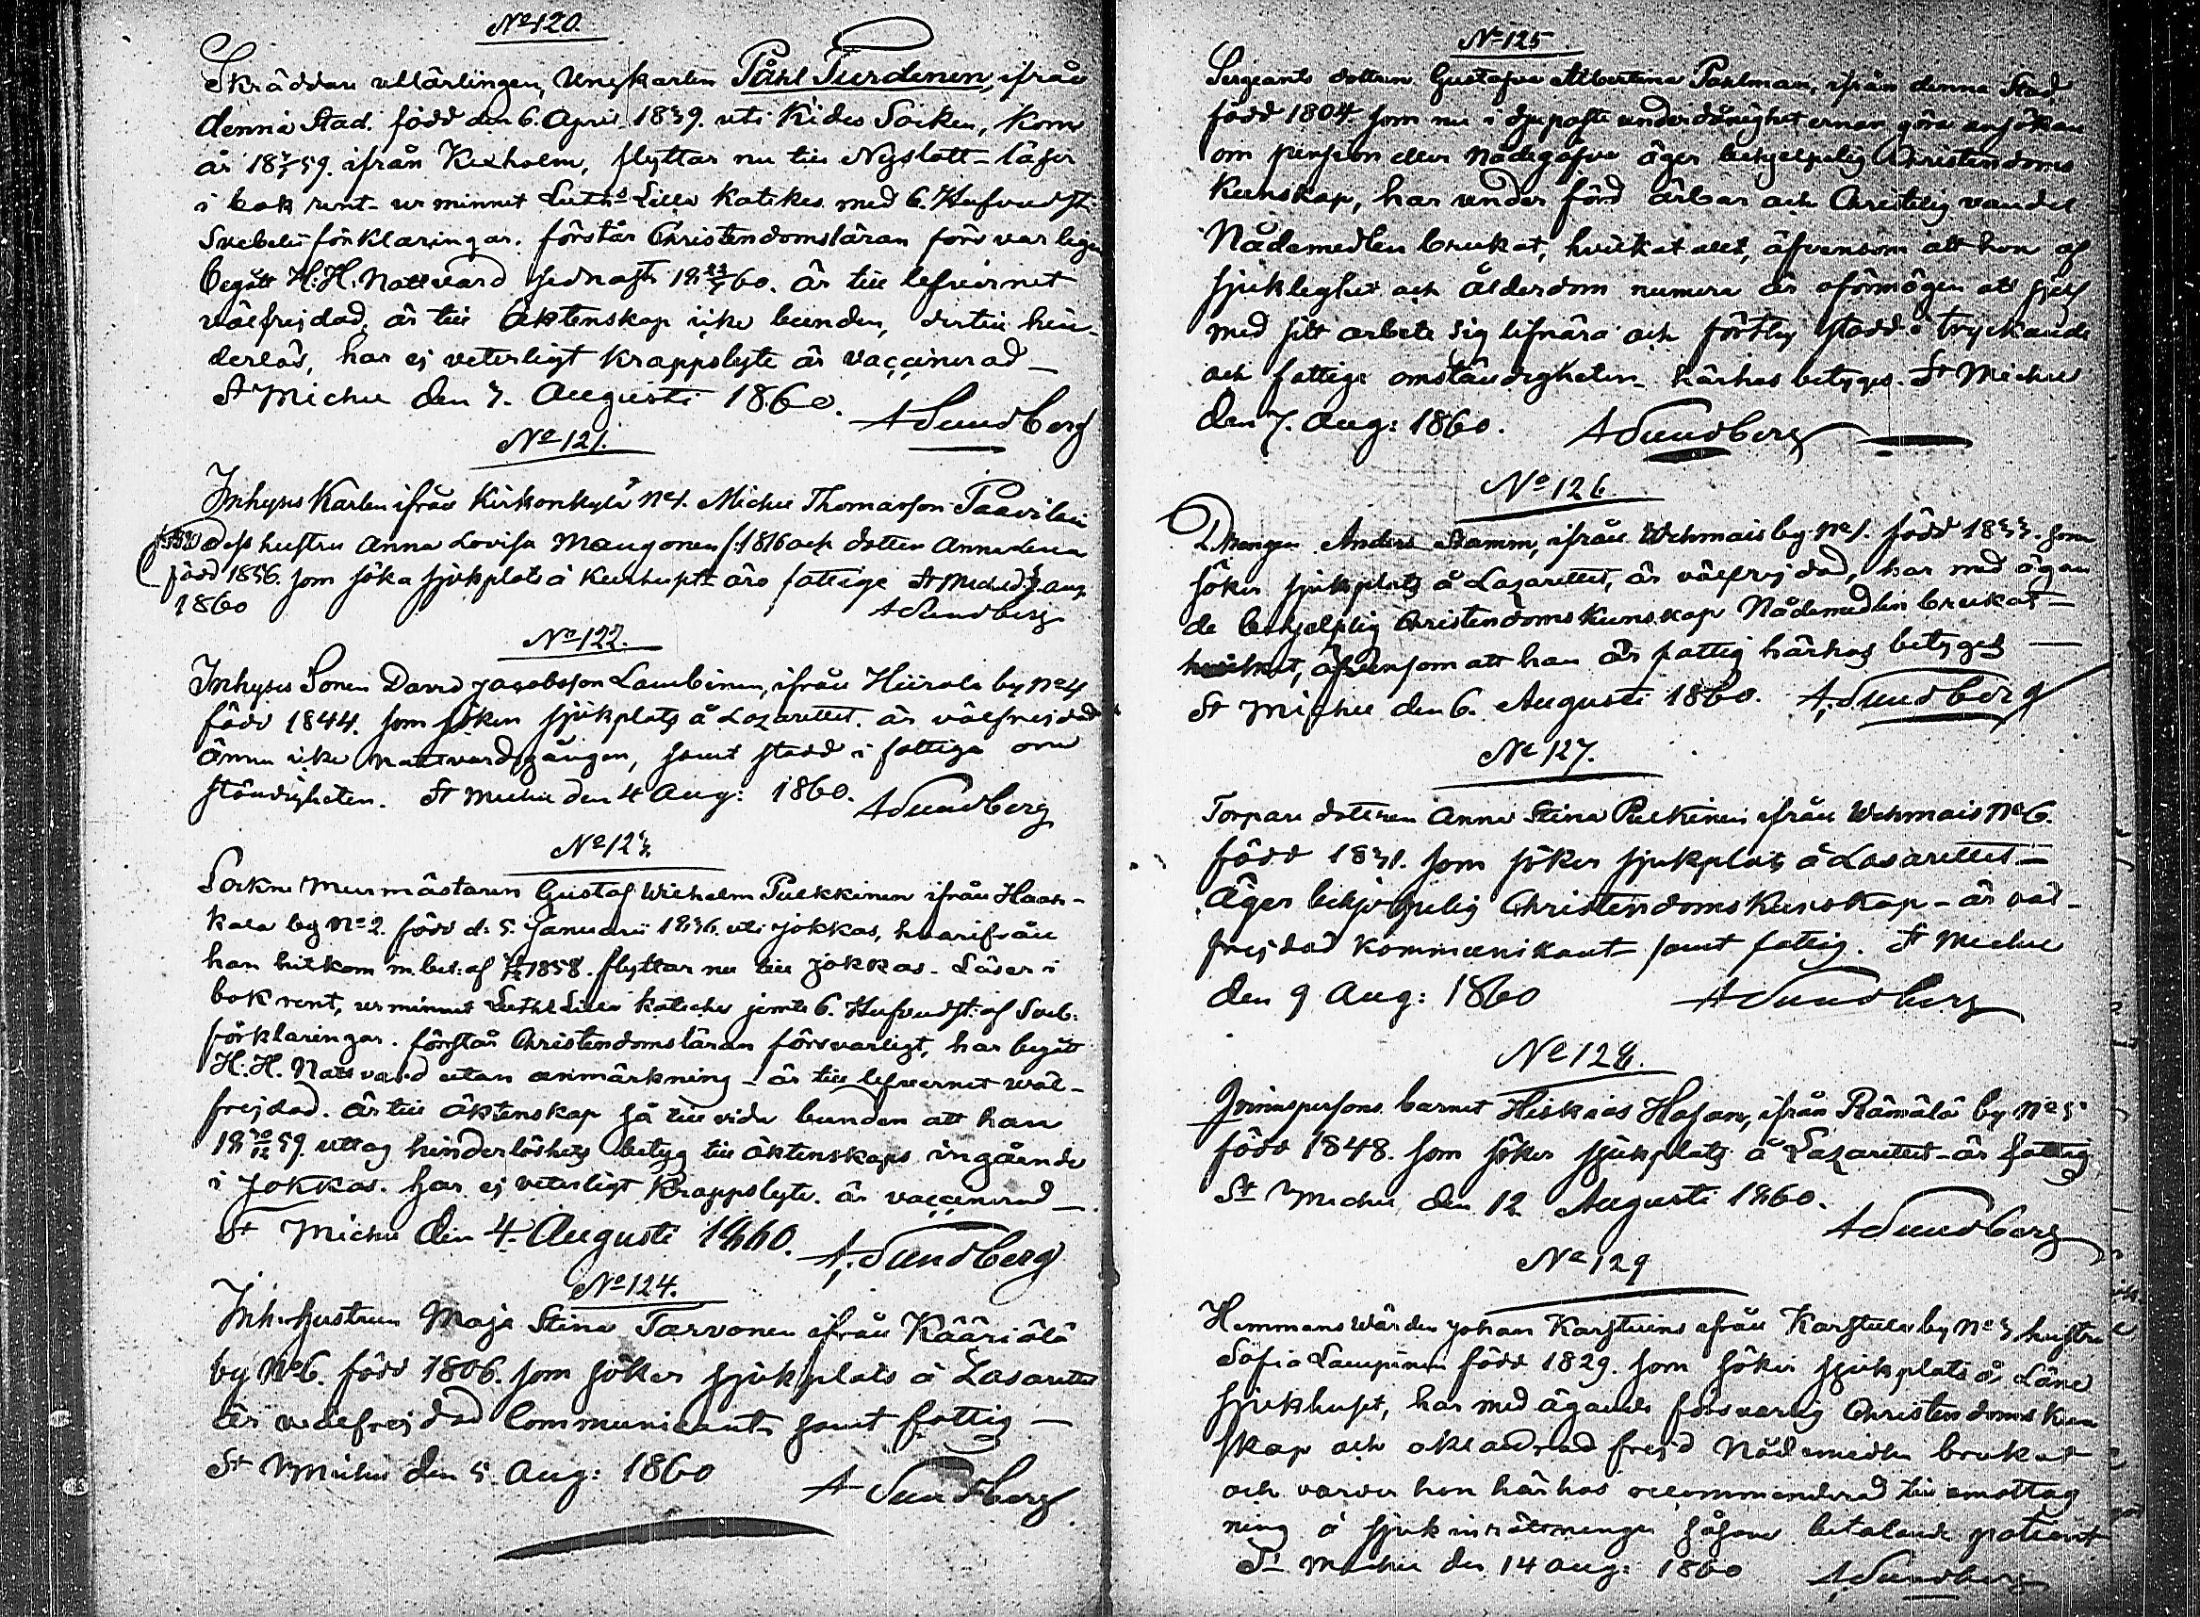 No 120.
Skräddare utlärlingen, Ungkarlen Påhl Turdinen, ifrån
denna Stad. född den 6. April 1839. uti Kides Socken, kom
år 18 59. ifrån Kexholm, flyttar nu till Nyslott - läser
i bok rent - ur minnet Luths Lilla Katekes med 6. Hufvudst:
Svebelii förklaringar. förstår Christendomsläran försvarligen
begått H.H. Nattvard sednast 18 60. är till lefvernet
välfrejdad, är till Äktenskap icke bunden, dertill hin-
derlös, har ej veterligt kroppslyte är vaccinerad -
St Michel den 7. Augusti 1860. A Sundberg
No 121.
Inhyses Karlen ifrån Kirkonkylä No 1. Michel Thomasson Paavilain
dess hustru Anna Lovisa Maugonen f: 1816 och dotter Anna Lena
född 1856. som söka sjukplats å Kurhuset äro fattige St Michel d. Aug.
1860 A Sundberg
No 122.
Inhyses Sonen David Jacobsson Laubinen, ifrån Hiirola by No 4
född 1844. som söker sjukplats å Lazarettet. är välfrejdad
ännu icke nattvardsgången, samt stadd i fattiga om
ständigheter. St Michel den 4 Aug: 1860. A Sundberg
No 123.
Sockne Murmästaren Gustaf Wilhelm Pulkkinen ifrån Haan-
kala by No 2. född d: 5. Januarii 1836. uti Jokkas, hvarifrån
han hitkom m. bet: af 1858. flyttar nu till Jokkas. Läser i
bok rent, ur minnet Luths Lilla kateches jemte 6. Hufvudst: af Sveb:
förklaringar. förstår Christendomsläran försvarligt, har begått
H.H. Nattvard utan anmärkning - är till lefvernet wäl-
frejdad. Är till äktenskap så till vida bunden att han
18 59 uttog hinderlöshets betyg till äktenskaps ingående
i Jokkas. har ej veterligt kroppslyte. är vaccinerad -
St Michel den 4. Augusti 1860. A. Sundberg
No 124.
Inh. hustrun Maja Stina Tarvonen ifrån Kääriälä
by No 6. född 1806. som söker sjukplats å Lasarettet
är välfrejdad Communicant samt fattig -
St Michel den 5. Aug: 1860 A Sundberg
No 125
Sergeants dottren Gustafva Albertina Pahlman, ifrån denna Stad,
född 1804 som nu i djupaste underdånighet ernar göra ansökan
om pension eller Nådegåfva äger behjelpelig Christendoms
Kunskap, har under förd ärbar och Christelig vandel
Nådemedlen brukat, hvilket allt, äfvensom att hon af
sjuklighet och ålderdom numera är oförmögen att sjelf
med sitt arbete sig lifnära och förthy stadd i tryckande
och fattige omständigheter härhos betyges. St Michel
den 7. Aug: 1860. A Sundberg
No 126
Drängen Anders Stamm, ifrån Wehmais by No 1. född 1833. som
söker sjukplats å Lazarettet, är välfrejdad, har med ägan
de behjelplig Christendomskunskap Nådemedlen brukat -
hvilket, äfvensom att han är fattig härhos betyges -
St Michel den 6. Augusti 1860. A. Sundberg
No 127.
Torpare dottren Anna Stina Pulkinen ifrån Wehmais No 6.
född 1831. som söker sjukplats å Lasarettet -
Äger behjelpelig Christendomskunskap - är väl-
frejdad kommunikant samt fattig. St Michel
den 9 Aug: 1860 A Sundberg
No 128.
Qvinnspersons barnet Hiskias Hasan, ifrån Rämälä by No 5
född 1848. som söker sjukplats å Lazarettet - är fattig
St Michel den 12 Augusti 1860. A Sundberg
No 129
Hemmans Wärden Johan Karstuins ifrån Karstula by No 3 hustru
Sofia Laupinen född 1829. som söker sjukplats å Läne
sjukhuset, har med ägande försvarlig Christendoms kun
skap och oklandrad frejd Nådemedlen brukat
och varder hon härhos recommenderad till emottag
ning å sjukinrättningen såsom betalande patient
St Michel den 14 aug: 1860 A. Sundberg